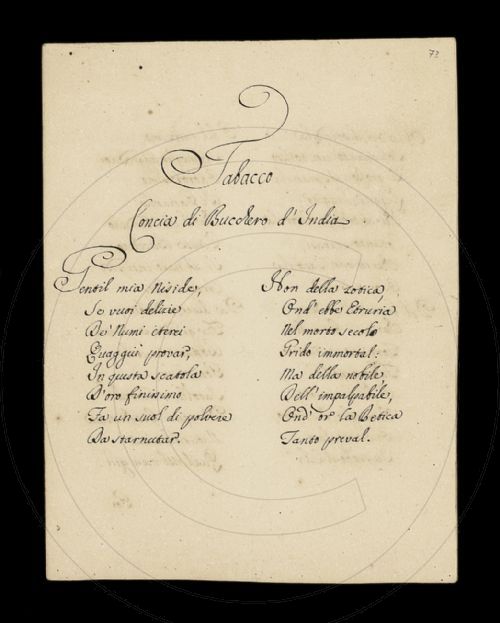 73
Tabacco
Concia di Bucchero d'India
Gentil mia Niside,
Se vuoi delizie
De' Numi eterei
Quaggiù provar,
In questa scatola
D'oro finissimo
Fa un suol di polvere
Da starnutar.
Non della zotica,
Ond' ebbe Etruria
Nel morto secolo
Grido immortal:
Ma della nobile
Dell' impalpabile,
Ond' or la Betica
Tanto preval.